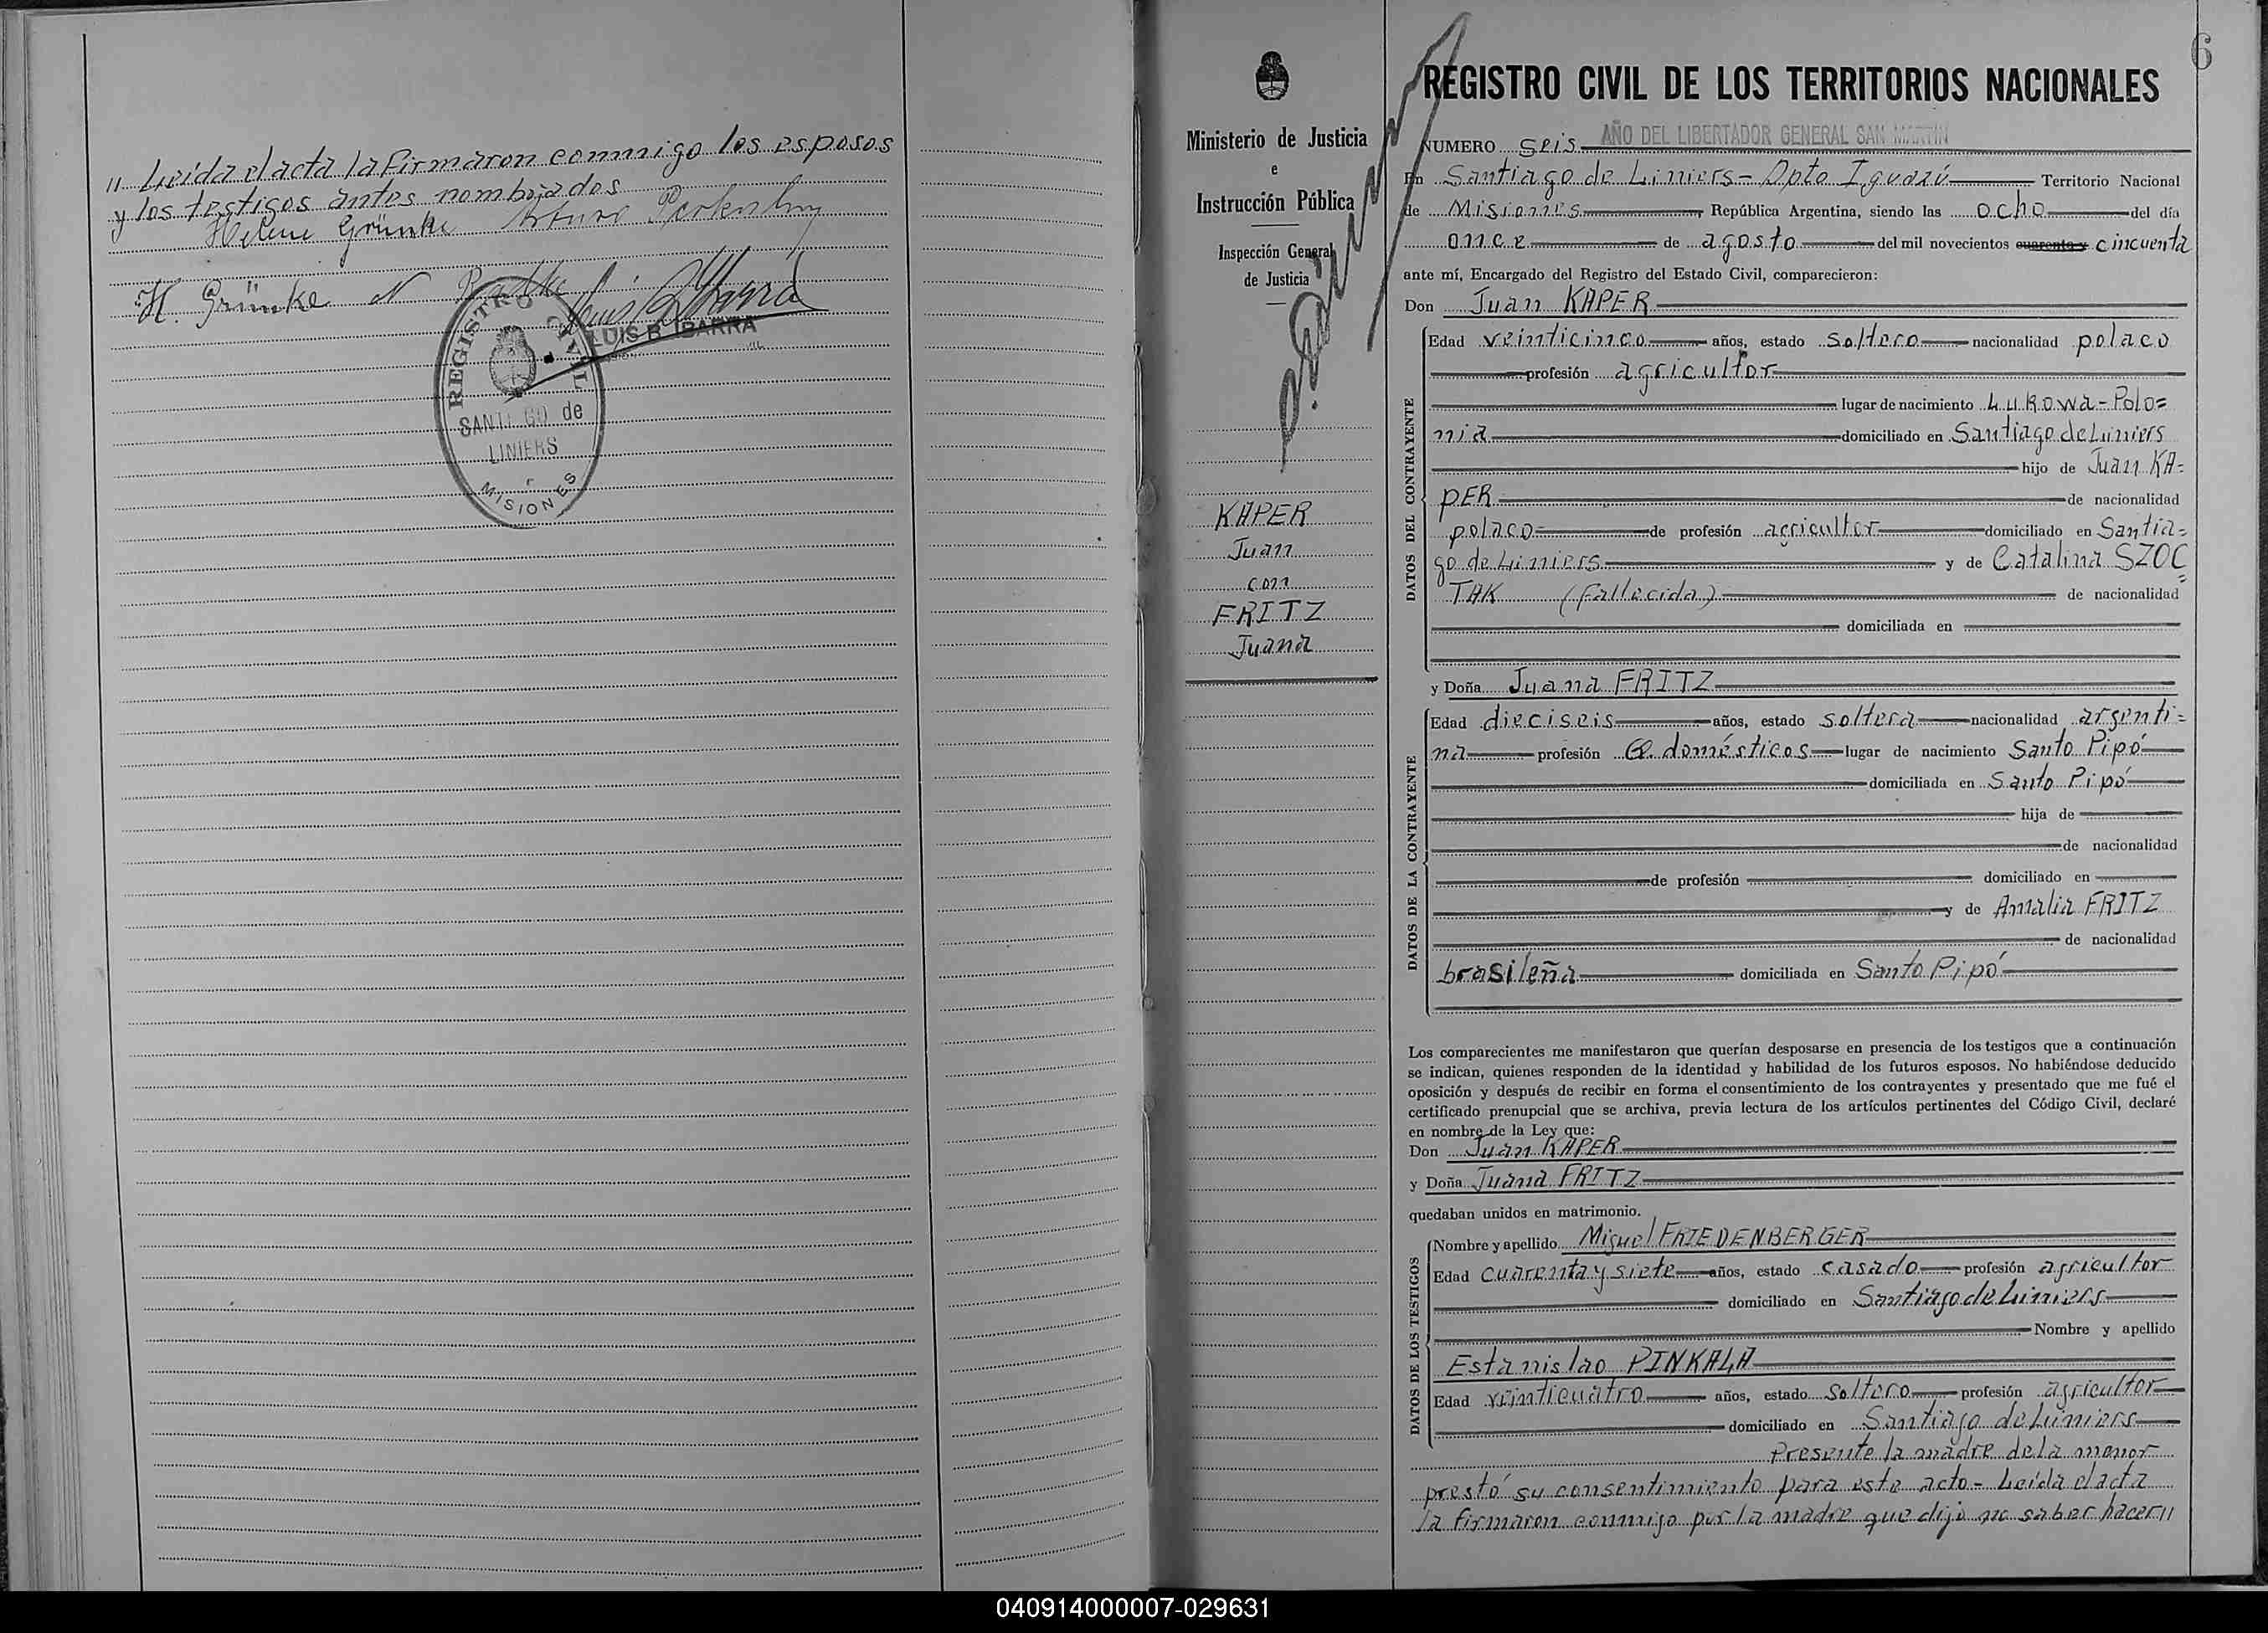 " Leida el acta la firmaron conmigo los esposos
y los testigos antes nombrados
Helene Grünke Arturo
H. Grünke N
Luis B. Ibarra
LUIS B. IBARRA
REGISTRO CIVIL
SANTIAGO de
LINIERS
MISIONES
Ministerio de Justicia
e
Instrucción Pública
Inspección General
de Justicia
KAPER
Juan
con
FRITZ
Juana
6
REGISTRO CIVIL DE LOS TERRITORIOS NACIONALES
AÑO DEL LIBERTADOR GENERAL SAN MARTIN
NUMERO seis
En Santiago de Liniers - Dpto Iguazú Territorio Nacional
de Misiones República Argentina, siendo las ocho del día
once de agosto del mil novecientos cuarenta y cincuenta
ante mí, Encargado del Registro del Estado Civil, comparecieron:
Don Juan KAPER
DATOS DEL CONTRAYENTE
Edad veinticinco años, estado soltero nacionalidad polaco
profesión agricultor
lugar de nacimiento Lukowa - Polo=
nia domiciliado en Santiago de Liniers
hijo de Juan KA=
PER de nacionalidad
polaco de profesión agricultor domiciliado en Santia=
go de Liniers y de Catalina SZOC=
TAK (fallecida) de nacionalidad
domiciliada en
y Doña Juana FRITZ
DATOS DE LA CONTRAYENTE
Edad dieciseis años, estado soltera nacionalidad argenti=
na profesión Q. domésticos lugar de nacimiento Santo Pipó
domiciliada en Santo Pipó
hija de
de nacionalidad
de profesión domiciliado en
y de Amalia FRITZ
de nacionalidad
brasileña domiciliada en Santo Pipó
Los comparecientes me manifestaron que querían desposarse en presencia de los testigos que a continuación
se indican, quienes responden de la identidad y habilidad de los futuros esposos. No habiéndose deducido
oposición y después de recibir en forma el consentimiento de los contrayentes y presentado que me fué el
certificado prenupcial que se archiva, previa lectura de los artículos pertinentes del Código Civil, declaré
en nombre de la Ley que:
Don Juan KAPER
y Doña Juana FRITZ
quedaban unidos en matrimonio.
DATOS DE LOS TESTIGOS
Nombre y apellido Miguel FRIEDENBERGER
Edad cuarenta y siete años, estado casado profesión agricultor
domiciliado en Santiago de Liniers
Nombre y apellido
Estanislao PINKALA
Edad veinticuatro años, estado soltero profesión agricultor
domiciliado en Santiago de Liniers
Presente la madre de la menor
prestó su consentimiento para este acto - Leída el acta
la firmaron conmigo por la madre que dijo no saber hacer "
040914000007-029631